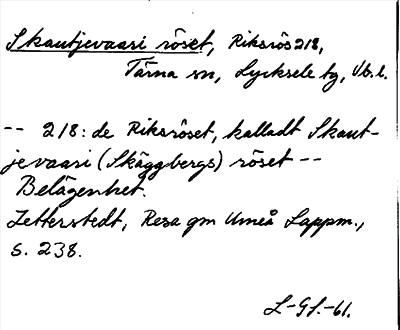 Skautjevaari röset, Riksrös 218,
Tärna sn, Lycksele tg, Vb.l.
-- 218: de Riksröset, kalladt Skaut-
jevaari (Skäggbergs) röset --
Belägenhet.
Zetterstedt, Resa gm Umeå Lappm.,
s. 238.
L-Gf.-61.